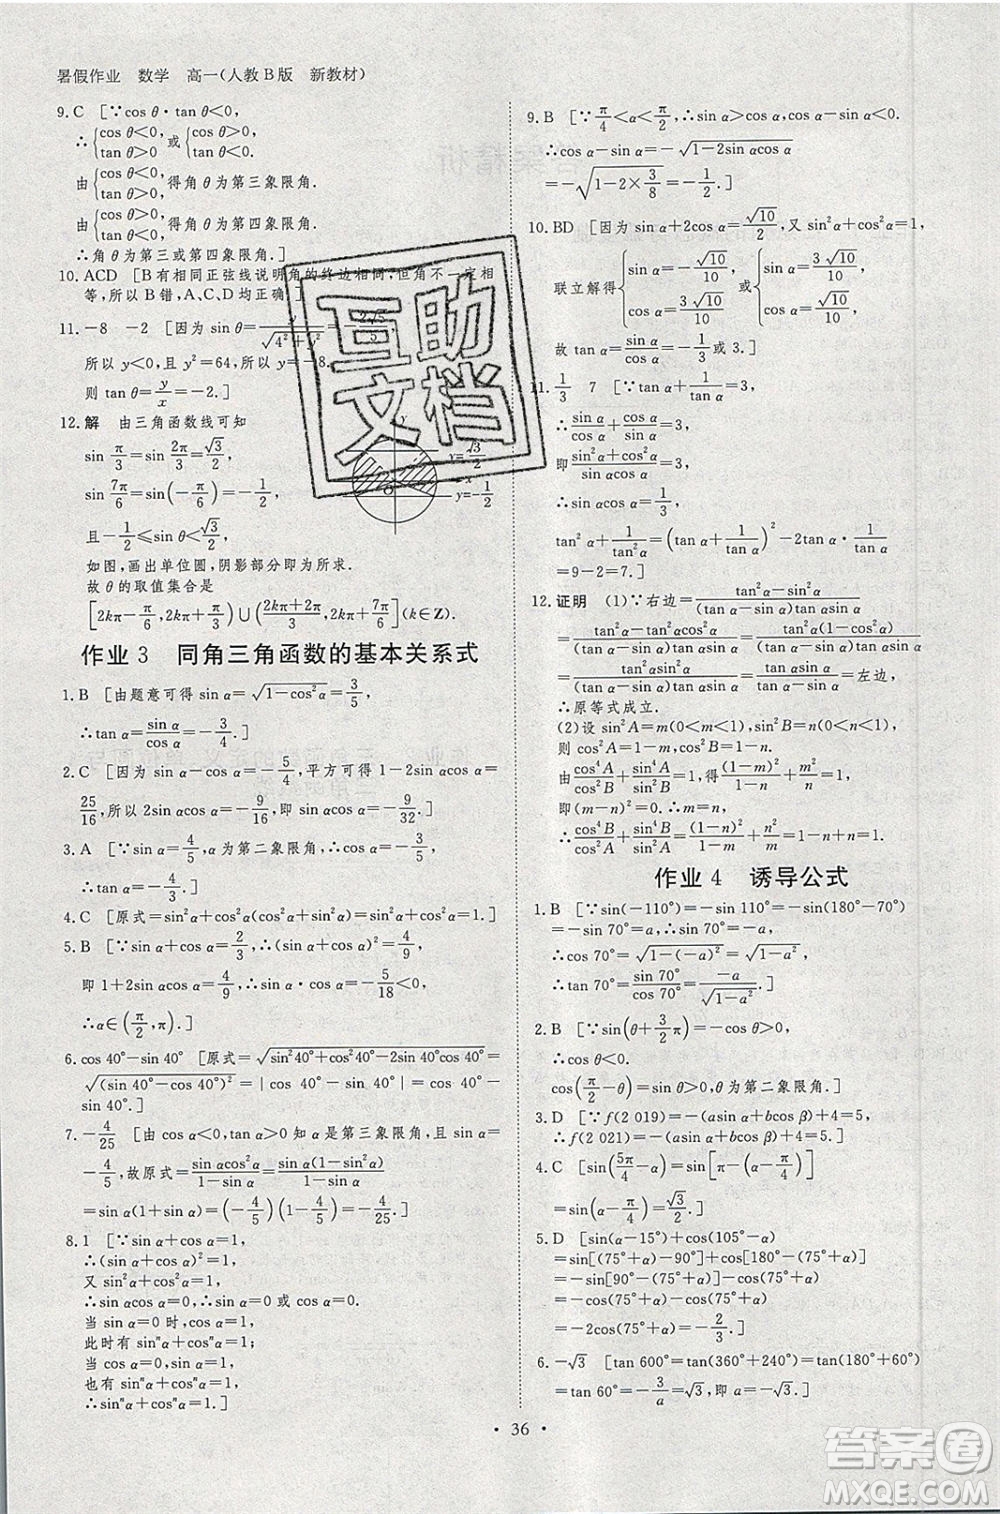 暑假作业 数学 高一(人教B版 新教材)
9.C [∵cos θ·tan θ<0,
∴{cos θ<0, tan θ>0 或{cos θ>0, tan θ<0.
由{cos θ<0, tan θ>0 得角θ为第三象限角.
由{cos θ>0, tan θ<0 得角θ为第四象限角.
∴角θ为第三或第四象限角.]
10.ACD [B有相同正弦线说明角的终边相同,但角不一定相
等,所以B错,A、C、D均正确.]
11.-8 -2 [因为sin θ=y/√(4²+y²)=-2√5/5,
所以y<0,且y²=64,所以y=-8.
则tan θ=y/x=-2.]
12.解 由三角函数线可知
sin π/3=sin 2π/3=√3/2,
sin 7π/6=sin(-π/6)=-1/2,
且-1/2≤sin θ<√3/2,
如图,画出单位圆,阴影部分即为所求.
故θ的取值集合是
[2kπ-π/6,2kπ+π/3)∪(2kπ+2π/3,2kπ+7π/6](k∈Z).
y
y=√3/2
x
O
y=-1/2
作业3 同角三角函数的基本关系式
1.B [由题意可得sin α=√(1-cos²α)=3/5,
∴tan α=sin α/cos α=-3/4.]
2.C [因为sin α-cos α=-5/4,平方可得1-2sin αcos α=
25/16,所以2sin αcos α=-9/16,即sin αcos α=-9/32.]
3.A [∵sin α=4/5,α为第二象限角,∴cos α=-3/5,
∴tan α=-4/3.]
4.C [原式=sin²α+cos²α(cos²α+sin²α)=sin²α+cos²α=1.]
5.B [∵sin α+cos α=2/3,∴(sin α+cos α)²=4/9,
即1+2sin αcos α=4/9,∴sin αcos α=-5/18<0,
∴α∈(π/2,π).]
6.cos 40°-sin 40° [原式=√(sin²40°+cos²40°-2sin 40°cos 40°)
=√((sin 40°-cos 40°)²)=|cos 40°-sin 40°|=cos 40°-
sin 40°.]
7.-4/25 [由cos α<0,tan α>0知α是第三象限角,且sin α=
-4/5,故原式=sin αcos²α/(1-sin α)=sin α(1-sin²α)/(1-sin α)
=sin α(1+sin α)=(-4/5)(1-4/5)=-4/25.]
8.1 [∵sin α+cos α=1,
∴(sin α+cos α)²=1,
又sin²α+cos²α=1,
∴sin αcos α=0,∴sin α=0或cos α=0.
当sin α=0时,cos α=1,
此时有sinⁿα+cosⁿα=1;
当cos α=0时,sin α=1,
也有sinⁿα+cosⁿα=1,
∴sinⁿα+cosⁿα=1.]
9.B [∵π/4<α<π/2,∴sin α>cos α,∴cos α-sin α<0.
∴cos α-sin α=-√(1-2sin αcos α)
=-√(1-2×3/8)=-1/2.]
10.BD [因为sin α+2cos α=√10/2,又sin²α+cos²α=1,
联立解得{sin α=-√10/10, cos α=3√10/10 或{sin α=3√10/10, cos α=√10/10,
故tan α=sin α/cos α=-1/3或3.]
11.1/3 7 [∵tan α+1/tan α=3,
∴sin α/cos α+cos α/sin α=3,
即(sin²α+cos²α)/(sin αcos α)=3,
∴sin αcos α=1/3,
tan²α+1/tan²α=(tan α+1/tan α)²-2tan α·1/tan α
=9-2=7.]
12.证明 (1)∵右边=(tan²α-sin²α)/((tan α-sin α)tan αsin α)
=(tan²α-tan²αcos²α)/((tan α-sin α)tan αsin α)=tan²α(1-cos²α)/((tan α-sin α)tan αsin α)
=tan²αsin²α/((tan α-sin α)tan αsin α)=tan αsin α/(tan α-sin α)=左边,
∴原等式成立.
(2)设sin²A=m(0<m<1),sin²B=n(0<n<1),
则cos²A=1-m,cos²B=1-n.
由cos⁴A/cos²B+sin⁴A/sin²B=1,得(1-m)²/(1-n)+m²/n=1,
即(m-n)²=0.∴m=n,
∴cos⁴B/cos²A+sin⁴B/sin²A=(1-n)²/(1-m)+n²/m=1-n+n=1.
作业4 诱导公式
1.B [∵sin(-110°)=-sin 110°=-sin(180°-70°)
=-sin 70°=a,∴sin 70°=-a,
∴cos 70°=√(1-(-a)²)=√(1-a²),
∴tan 70°=sin 70°/cos 70°=-a/√(1-a²).]
2.B [∵sin(θ+3/2π)=-cos θ>0,
∴cos θ<0.
cos(π/2-θ)=sin θ>0,θ为第二象限角.]
3.D [∵f(2 019)=-(asin α+bcos β)=1,
∴f(2 021)=-(asin α+bcos β)+4=5.]
4.C [sin(5π/4-α)=sin[π-(α-π/4)]
=sin(α-π/4)=√3/2.]
5.D [sin(α-15°)+cos(105°-α)
=sin[(75°+α)-90°]+cos[180°-(75°+α)]
=-sin[90°-(75°+α)]-cos(75°+α)
=-cos(75°+α)-cos(75°+α)
=-2cos(75°+α)=-2/3.]
6.-√3 [tan 600°=tan(360°+240°)=tan(180°+60°)
=tan 60°=-3/a=√3,∴a=-√3.]
• 36 •
互助
文档
答案圈
MXQE.COM